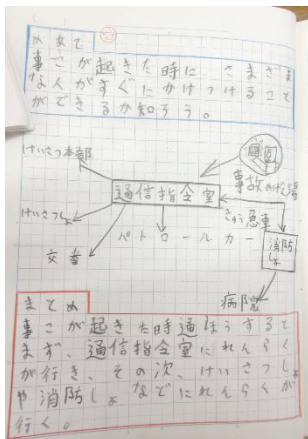 めあて
事こが起きた時に、さまざま
な人がすぐにかけつけること
ができるか知ろう。
けいさつ本部
通信指令室
事故の現場
けいさつしょ
パトロールカー
きゅう急車
消防しょ
交番
病院
まとめ
事こが起きた時通ほうすると
まず、通信指令室にれんらく
が行き、その次、けいさつしょ
や消防しょなどにれんらくが
行く。